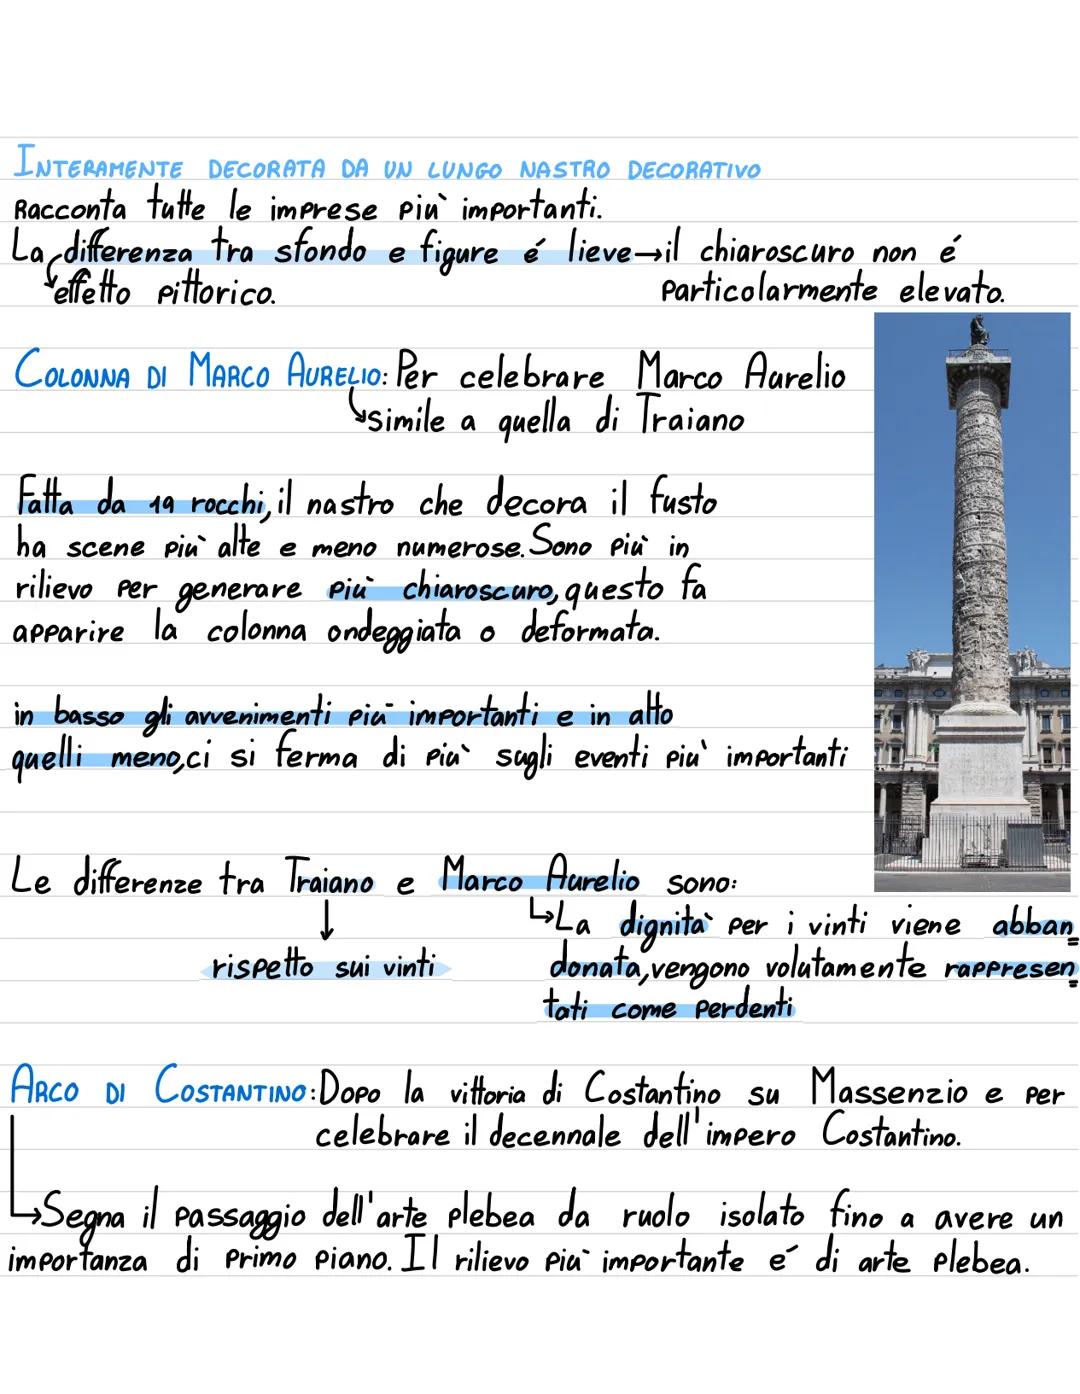 INTERAMENTE DECORATA DA UN LUNGO NASTRO DECORATIVO
Racconta tutte le imprese più importanti.
La differenza tra sfondo e figure é lieve→il chiaroscuro non é
effetto pittorico. particolarmente elevato.
COLONNA DI MARCO AURELIO: Per celebrare Marco Aurelio
↳simile a quella di Traiano
Fatta da 19 rocchi, il nastro che decora il fusto
ha scene più alte e meno numerose. Sono più in
rilievo per generare più chiaroscuro, questo fa
apparire la colonna ondeggiata o deformata.
in basso gli avvenimenti più importanti e in alto
quelli meno, ci si ferma di più sugli eventi più importanti
Le differenze tra Traiano e Marco Aurelio sono:
↓
rispetto sui vinti
↳La dignità per i vinti viene abban
donata, vengono volutamente rappresen
tati come perdenti
ARCO DI COSTANTINO: Dopo la vittoria di Costantino su Massenzio e per
celebrare il decennale dell'impero Costantino.
↳Segna il passaggio dell'arte plebea da ruolo isolato fino a avere un
importanza di primo piano. Il rilievo più importante é di arte plebea.